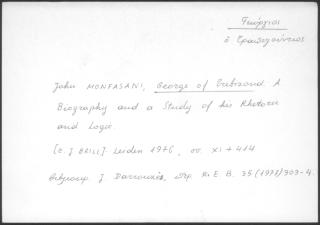 Γεώργιος
ὁ Τραπεζούντιος
John MONFASANI, George of Trebizond. A
Biography and a Study of his Rhetoric
and Logic.
[E. J. BRILL]. Leiden 1976, σσ. XI + 414
J. Darrouzès, R. E. B. 35 (1977) 303-4.